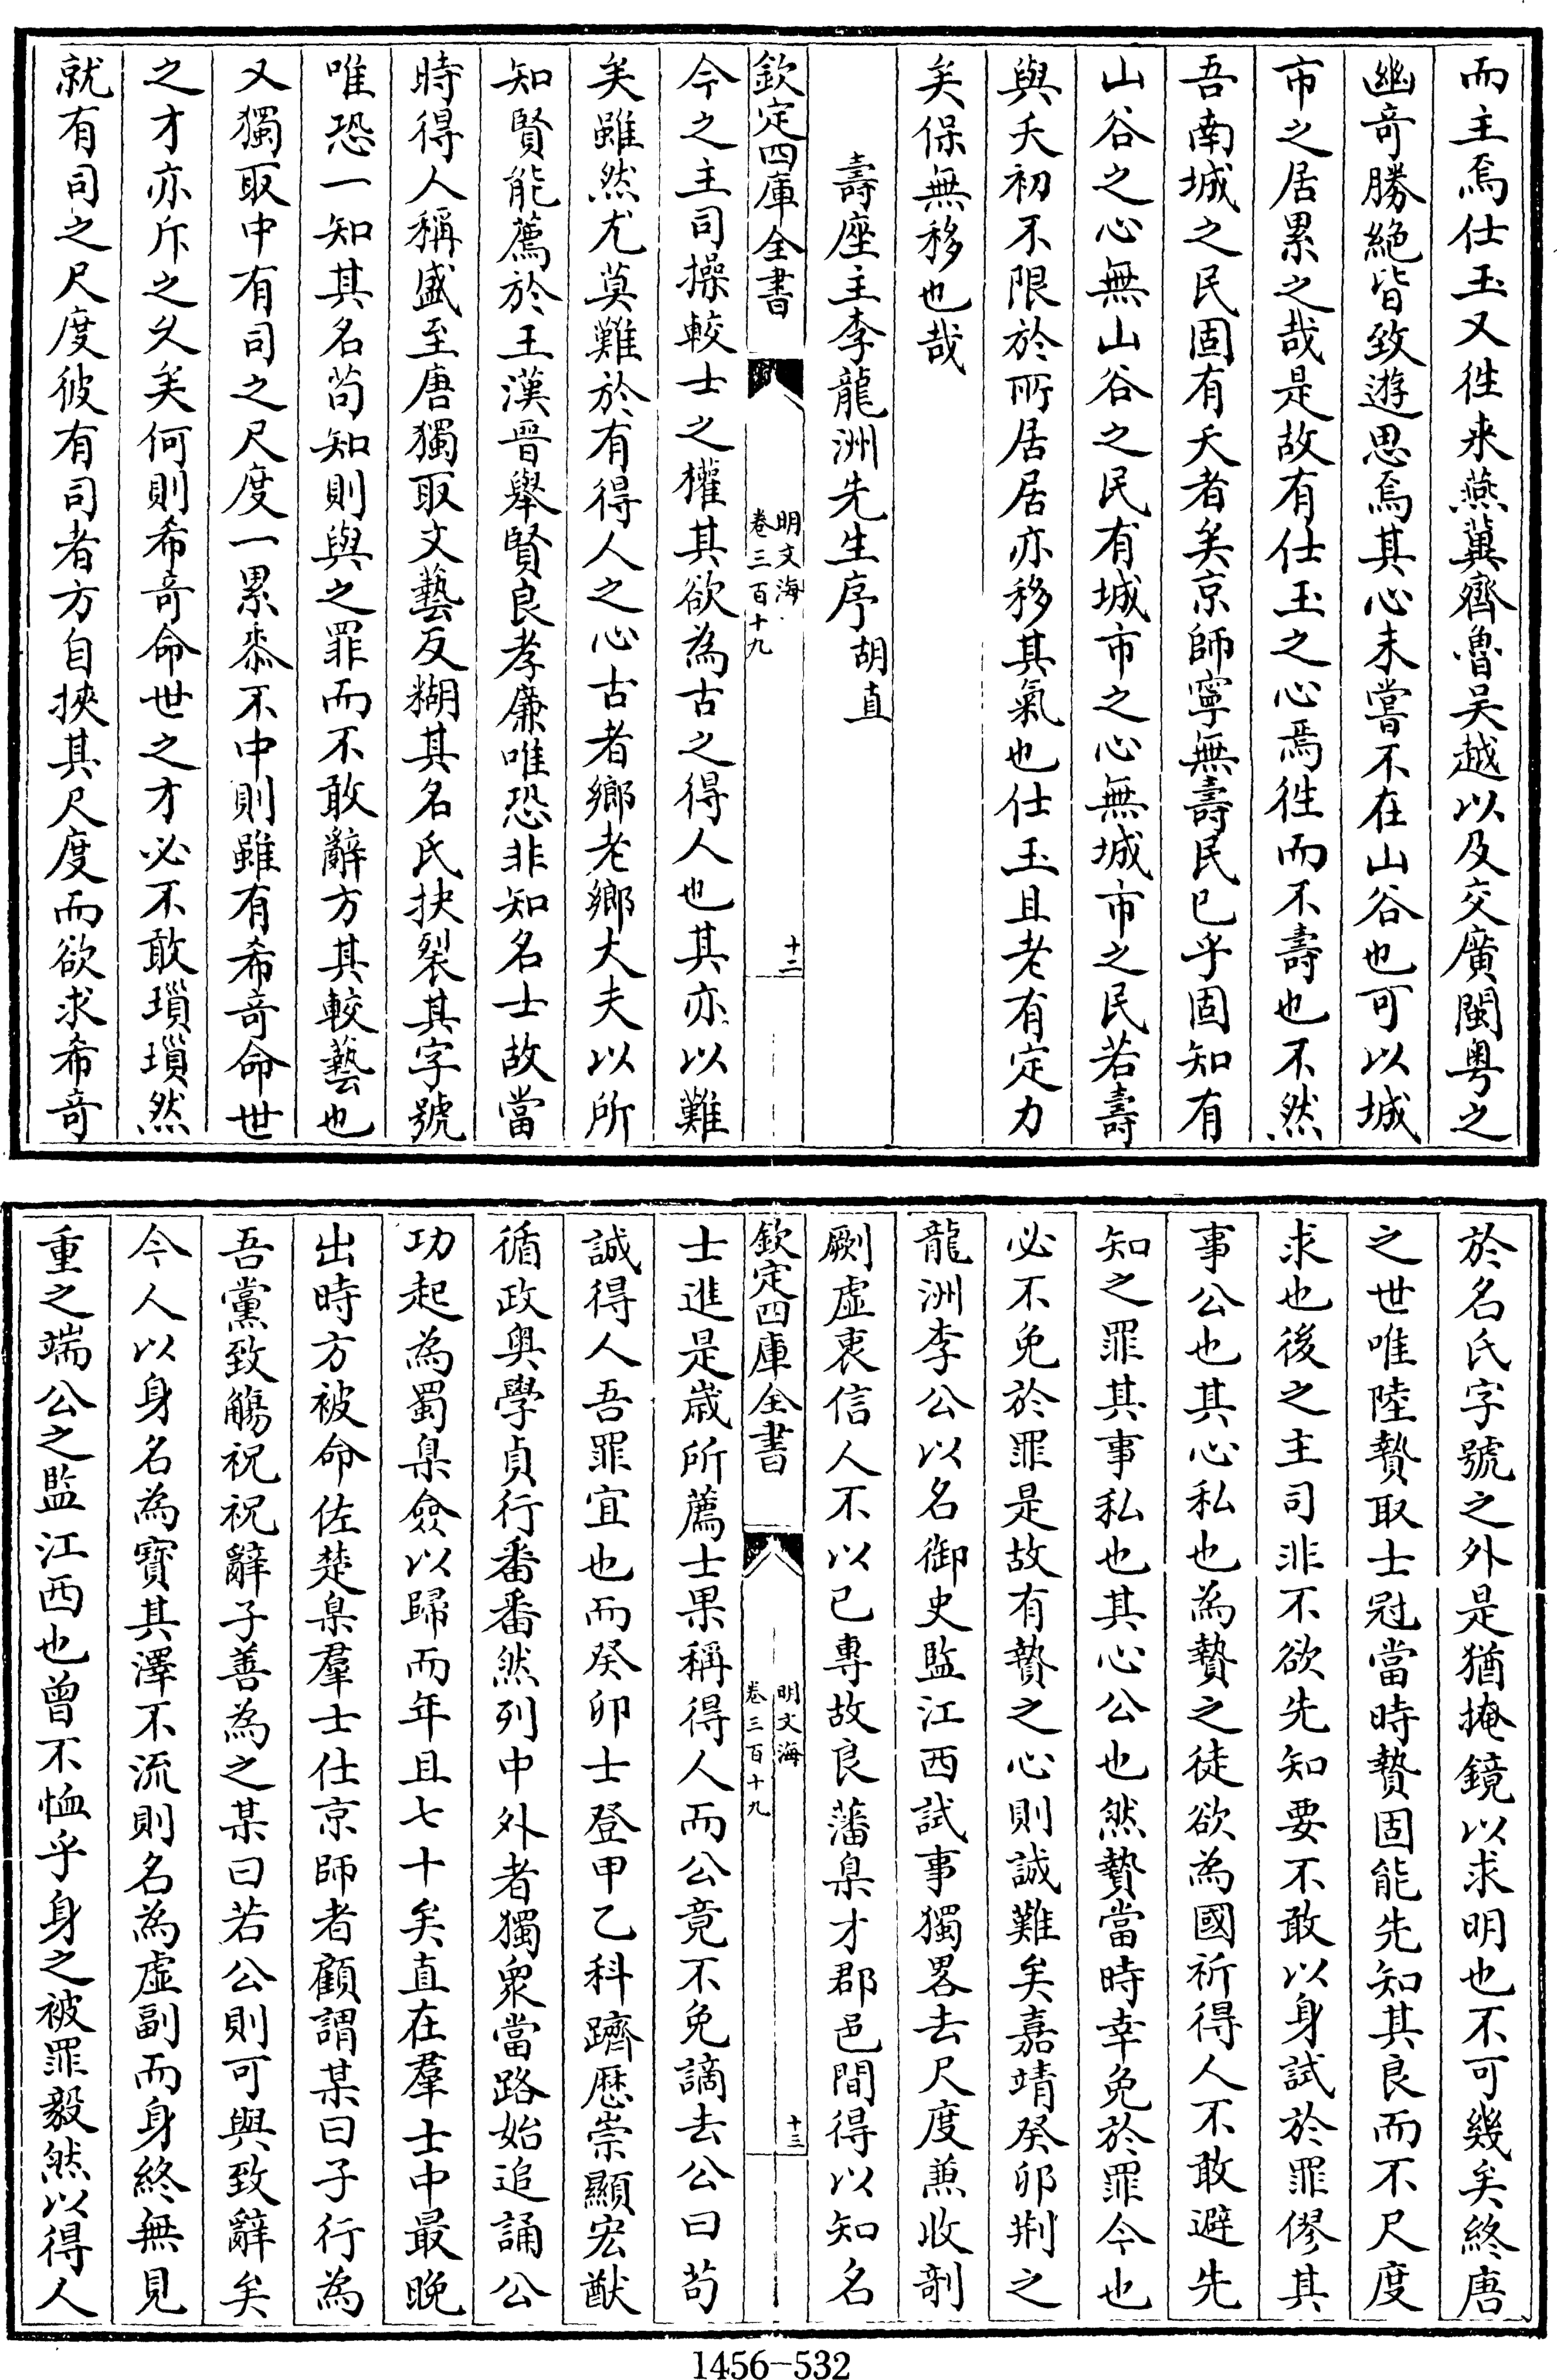 而主焉仕玉又徃来燕冀齊魯吴越以及交廣閩粤之
幽奇勝絶皆致遊思焉其心未嘗不在山谷也可以城
市之居累之哉是故有仕玉之心焉徃而不壽也不然
吾南城之民固有夭者矣京師寧無壽民已乎固知有
山谷之心無山谷之民有城市之心無城市之民若壽
與夭初不限於所居居亦移其氣也仕玉且老有定力
矣保無移也哉
壽座主李龍洲先生序 胡直
欽定四庫全書
明文海
卷三百十九
十二
今之主司操較士之權其欲為古之得人也其亦以難
矣雖然尤莫難於有得人之心古者鄉老鄉大夫以所
知賢能薦於王漢晉舉賢良孝廉唯恐非知名士故當
時得人稱盛至唐獨取文藝反糊其名氏抉裂其字號
唯恐一知其名茍知則與之罪而不敢辭方其較藝也
又獨取中有司之尺度一累黍不中則雖有希竒命世
之才亦斥之乆矣何則希竒命世之才必不敢瑣瑣然
就有司之尺度彼有司者方自挾其尺度而欲求希竒
於名氏字號之外是猶掩鏡以求明也不可幾矣終唐
之世唯陸贄取士冠當時贄固能先知其良而不尺度
求也後之主司非不欲先知要不敢以身試於罪僇其
事公也其心私也為贄之徒欲為國祈得人不敢避先
知之罪其事私也其心公也然贄當時幸免於罪今也
必不免於罪是故有贄之心則誠難矣嘉靖癸卯荆之
龍洲李公以名御史監江西試事獨畧去尺度兼收剖
劂虛衷信人不以已專故良藩臬才郡邑間得以知名
欽定四庫全書
明文海
卷三百十九
十三
士進是嵗所薦士果稱得人而公竟不免謫去公曰茍
誠得人吾罪宜也而癸卯士登甲乙科躋歴崇顯宏猷
循政奥學貞行番番然列中外者獨衆當路始追誦公
功起為蜀臬僉以歸而年且七十矣直在羣士中最晚
出時方被命佐楚臬羣士仕京師者顧謂某曰子行為
吾黨致觴祝祝辭子善為之某曰若公則可與致辭矣
今人以身名為寳其澤不流則名為虛副而身終無見
重之端公之監江西也曾不恤乎身之被罪毅然以得人
1456-532